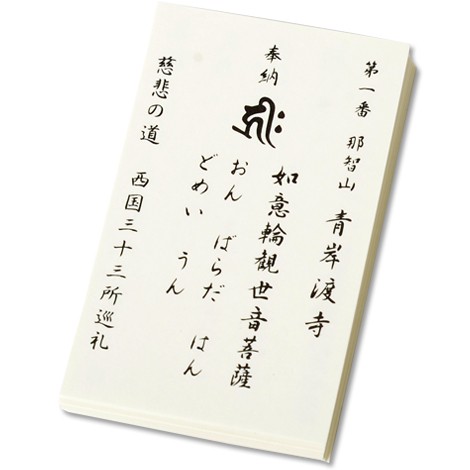 第一番 那智山 青岸渡寺
奉納
如意輪観世音菩薩
おん ばらだ はん
どめい うん
慈悲の道 西国三十三所巡礼